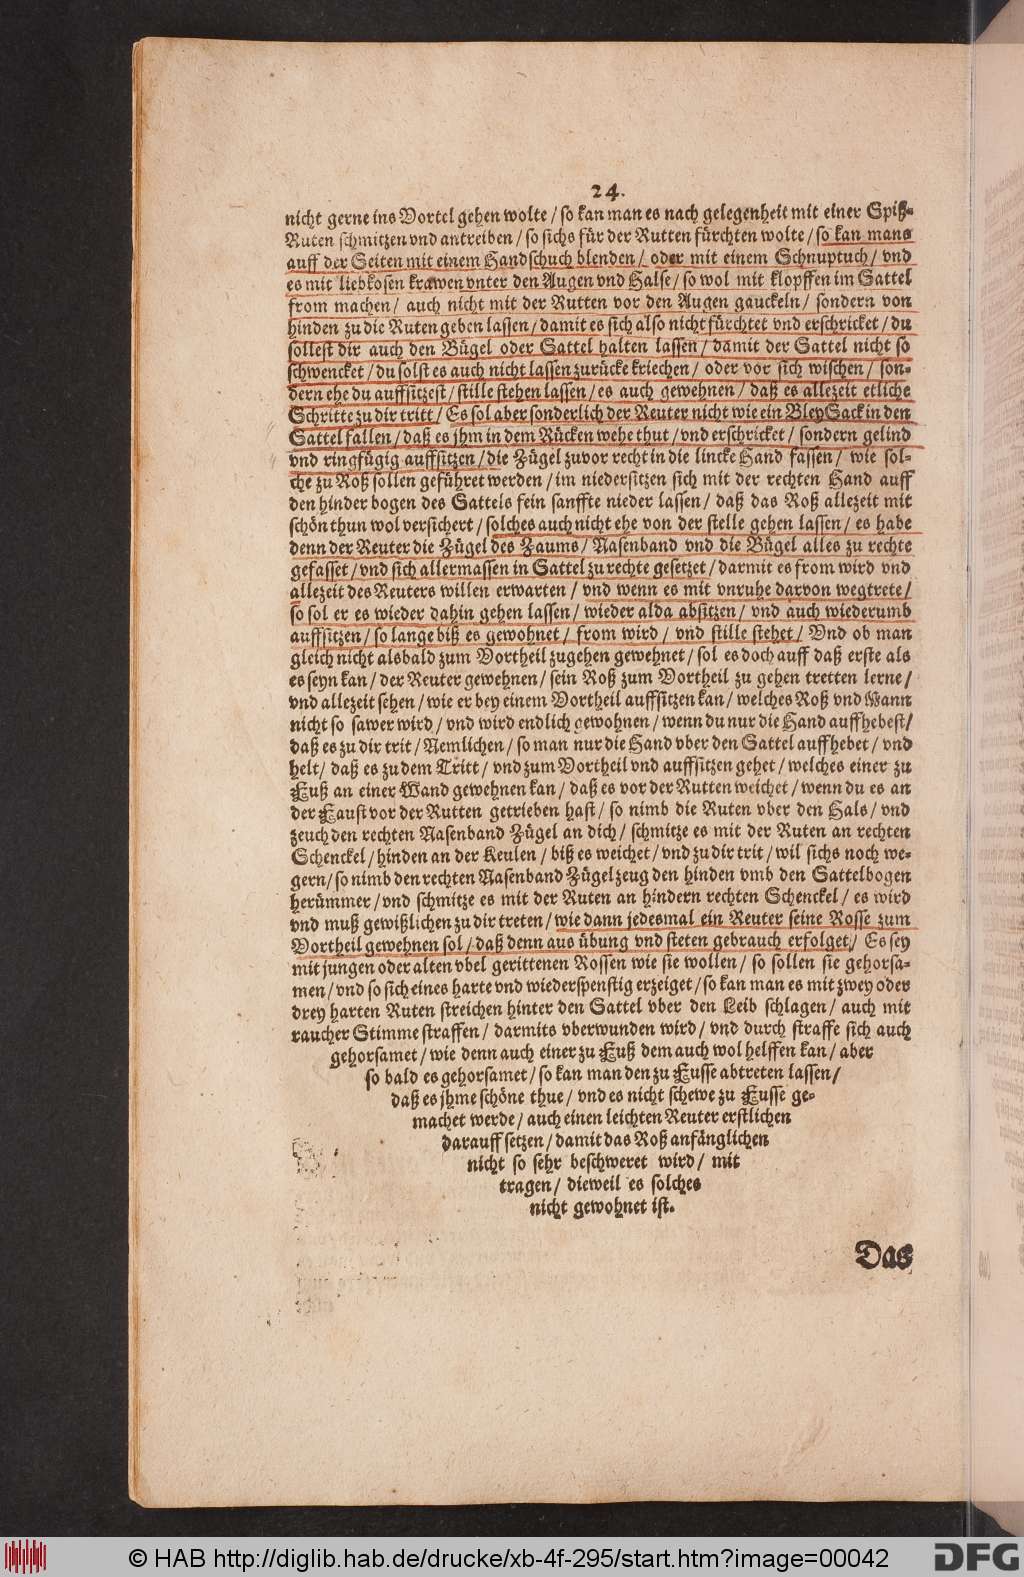 24.
nicht gerne ins Vortel gehen wolte / so kan man es nach gelegenheit mit einer Spiß-
Ruten schmitzen vnd antreiben / so sichs für der Rutten fürchten wolte / so kan mans
auff der Seiten mit einem Handschuch blenden / oder mit einem Schnuptuch / vnd
es mit liebkosen krawen vnter den Augen vnd Halse / so wol mit klopffen im Sattel
from machen / auch nicht mit der Rutten vor den Augen gauckeln / sondern von
hinden zu die Ruten geben lassen / damit es sich also nicht fürchtet vnd erschricket / du
sollest dir auch den Bügel oder Sattel halten lassen / damit der Sattel nicht so
schwencket / du solst es auch nicht lassen zurücke kriechen / oder vor sich wischen / son-
dern ehe du auffsitzest / stille stehen lassen / es auch gewehnen / daß es allezeit etliche
Schritte zu dir tritt / Es sol aber sonderlich der Reuter nicht wie ein Bley Sack in den
Sattel fallen / daß es jhm in dem Rücken wehe thut / vnd erschricket / sondern gelind
vnd ringfügig auffsitzen / die Zügel zuvor recht in die lincke Hand fassen / wie sol-
che zu Roß sollen geführet werden / im niedersitzen sich mit der rechten Hand auff
den hinder bogen des Sattels fein sanffte nieder lassen / daß das Roß allezeit mit
schön thun wol versichert / solches auch nicht ehe von der stelle gehen lassen / es habe
denn der Reuter die Zügel des Zaums / Nasenband vnd die Bügel alles zu rechte
gefasset / vnd sich allermassen in Sattel zu rechte gesetzet / darmit es from wird vnd
allezeit des Reuters willen erwarten / vnd wenn es mit vnruhe darvon wegtrete /
so sol er es wieder dahin gehen lassen / wieder alda absitzen / vnd auch wiederumb
auffsitzen / so lange biß es gewohnet / from wird / vnd stille stehet / Vnd ob man
gleich nicht alsbald zum Vortheil zugehen gewehnet / sol es doch auff daß erste als
es seyn kan / der Reuter gewehnen / sein Roß zum Vortheil zu gehen tretten lerne /
vnd allezeit sehen / wie er bey einem Vortheil auffsitzen kan / welches Roß vnd Mann
nicht so sawer wird / vnd wird endlich gewohnen / wenn du nur die Hand auffhebest /
daß es zu dir trit / Nemlichen / so man nur die Hand vber den Sattel auffhebet / vnd
helt / daß es zu dem Tritt / vnd zum Vortheil vnd auffsitzen gehet / welches einer zu
Fuß an einer Wand gewehnen kan / daß es vor der Rutten weichet / wenn du es an
der Faust vor der Rutten getrieben hast / so nimb die Ruten vber den Hals / vnd
zeuch den rechten Nasenband Zügel an dich / schmitze es mit der Ruten an rechten
Schenckel / hinden an der Keulen / biß es weichet / vnd zu dir trit / wil sichs noch we-
gern / so nimb den rechten Nasenband Zügel zeug den hinden vmb den Sattelbogen
herümmer / vnd schmitze es mit der Ruten an hindern rechten Schenckel / es wird
vnd muß gewißlichen zu dir treten / wie dann jedesmal ein Reuter seine Rosse zum
Vortheil gewehnen sol / daß denn aus übung vnd steten gebrauch erfolget / Es sey
mit jungen oder alten vbel gerittenen Rossen wie sie wollen / so sollen sie gehorsa-
men / vnd so sich eines harte vnd wiederspenstig erzeiget / so kan man es mit zwey oder
drey harten Ruten streichen hinter den Sattel vber den Leib schlagen / auch mit
raucher Stimme straffen / darmits vberwunden wird / vnd durch straffe sich auch
gehorsamet / wie denn auch einer zu Fuß dem auch wol helffen kan / aber
so bald es gehorsamet / so kan man den zu Fusse abtreten lassen /
daß es jhme schöne thue / vnd es nicht schewe zu Fusse ge-
machet werde / auch einen leichten Reuter erstlichen
darauff setzen / damit das Roß anfänglichen
nicht so sehr beschweret wird / mit
tragen / dieweil es solches
nicht gewohnet ist.
Das
© HAB http://diglib.hab.de/drucke/xb-4f-295/start.htm?image=00042
DFG